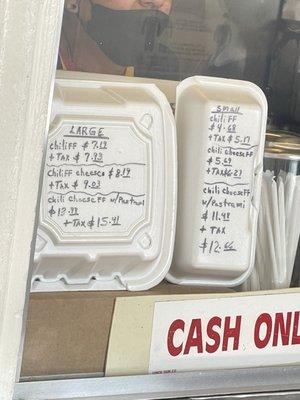 LARGE
chiliFF $ 7.19
+ TAX $ 7.93
Chili FF cheese $ 8.19
+ TAX $ 9.03
Chili Cheese FF w/Pastrami
+ TAX $ 15.41
SMALL
chili FF
$ 4.68
+ TAX $ 5.17
chili cheese FF
$ 5.69
+TAX $ 6.27
Chili CheeseFF
w/Pastrami
$ 11.48
+ TAX
$ 12.66
CASH ONL